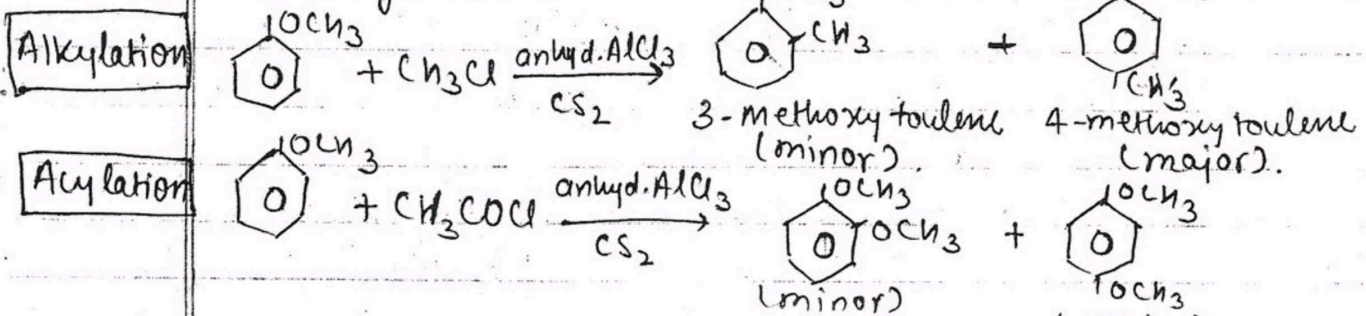 Alkylation OCH3 + CH3Cl anhyd.AlCl3 CS2 CH3 + CH3
3-methoxy toulene (minor). 4-methoxy toulene (major).
Acylation OCH3 + CH3COCl anhyd.AlCl3 CS2 OCH3 OCH3 + OCH3 OCH3
(minor)